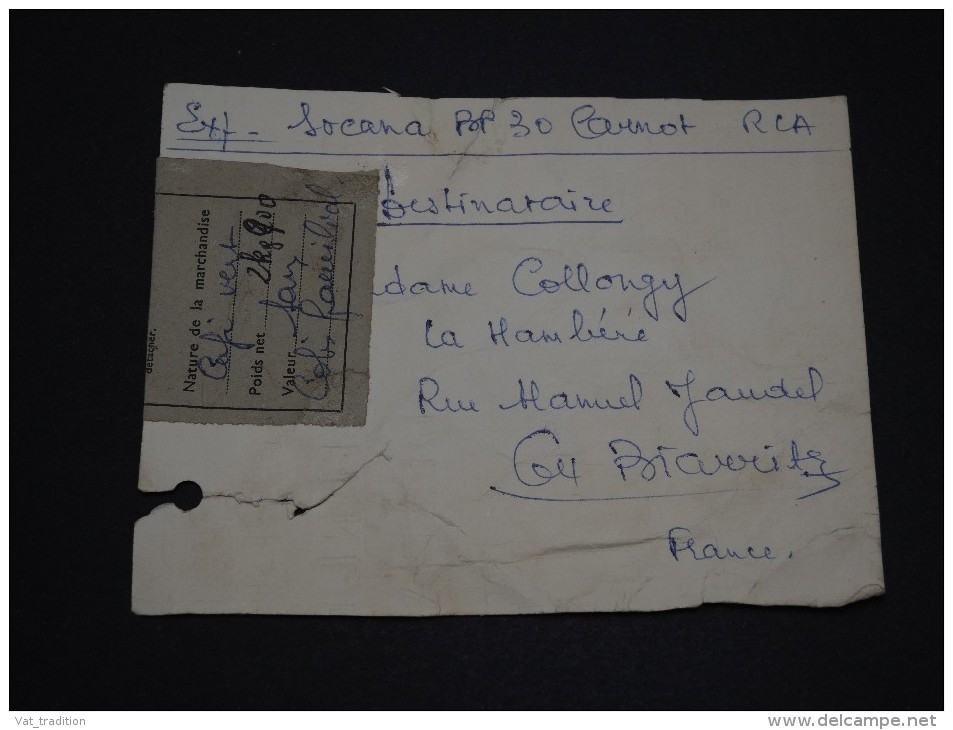 Exp - Socana BP 30 Carnot RCA
Destinataire
dame Collongy
La Hambéré
Rue Manuel Jaudel
64 Biarritz
France.
détacher.
Nature de la marchandise
Café vert
Poids net 2kg900
Valeur sans
Colis familial
Vat_tradition
www.delcampe.net